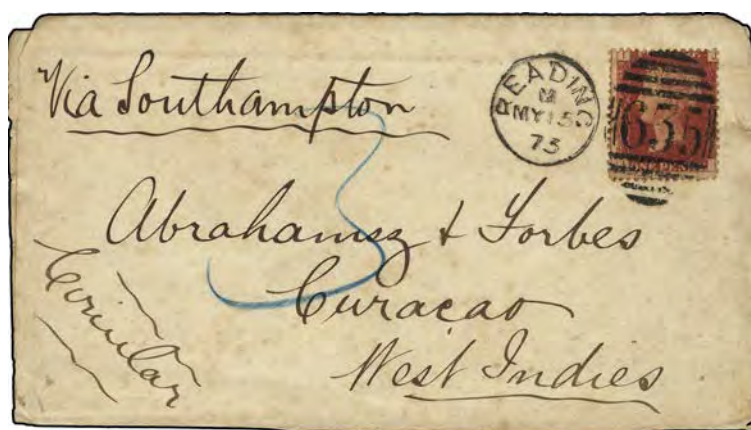 Via Southampton
READING
M
MY 15
75
635
3
Abrahamsz & Forbes
Curacao
West Indies
Circular